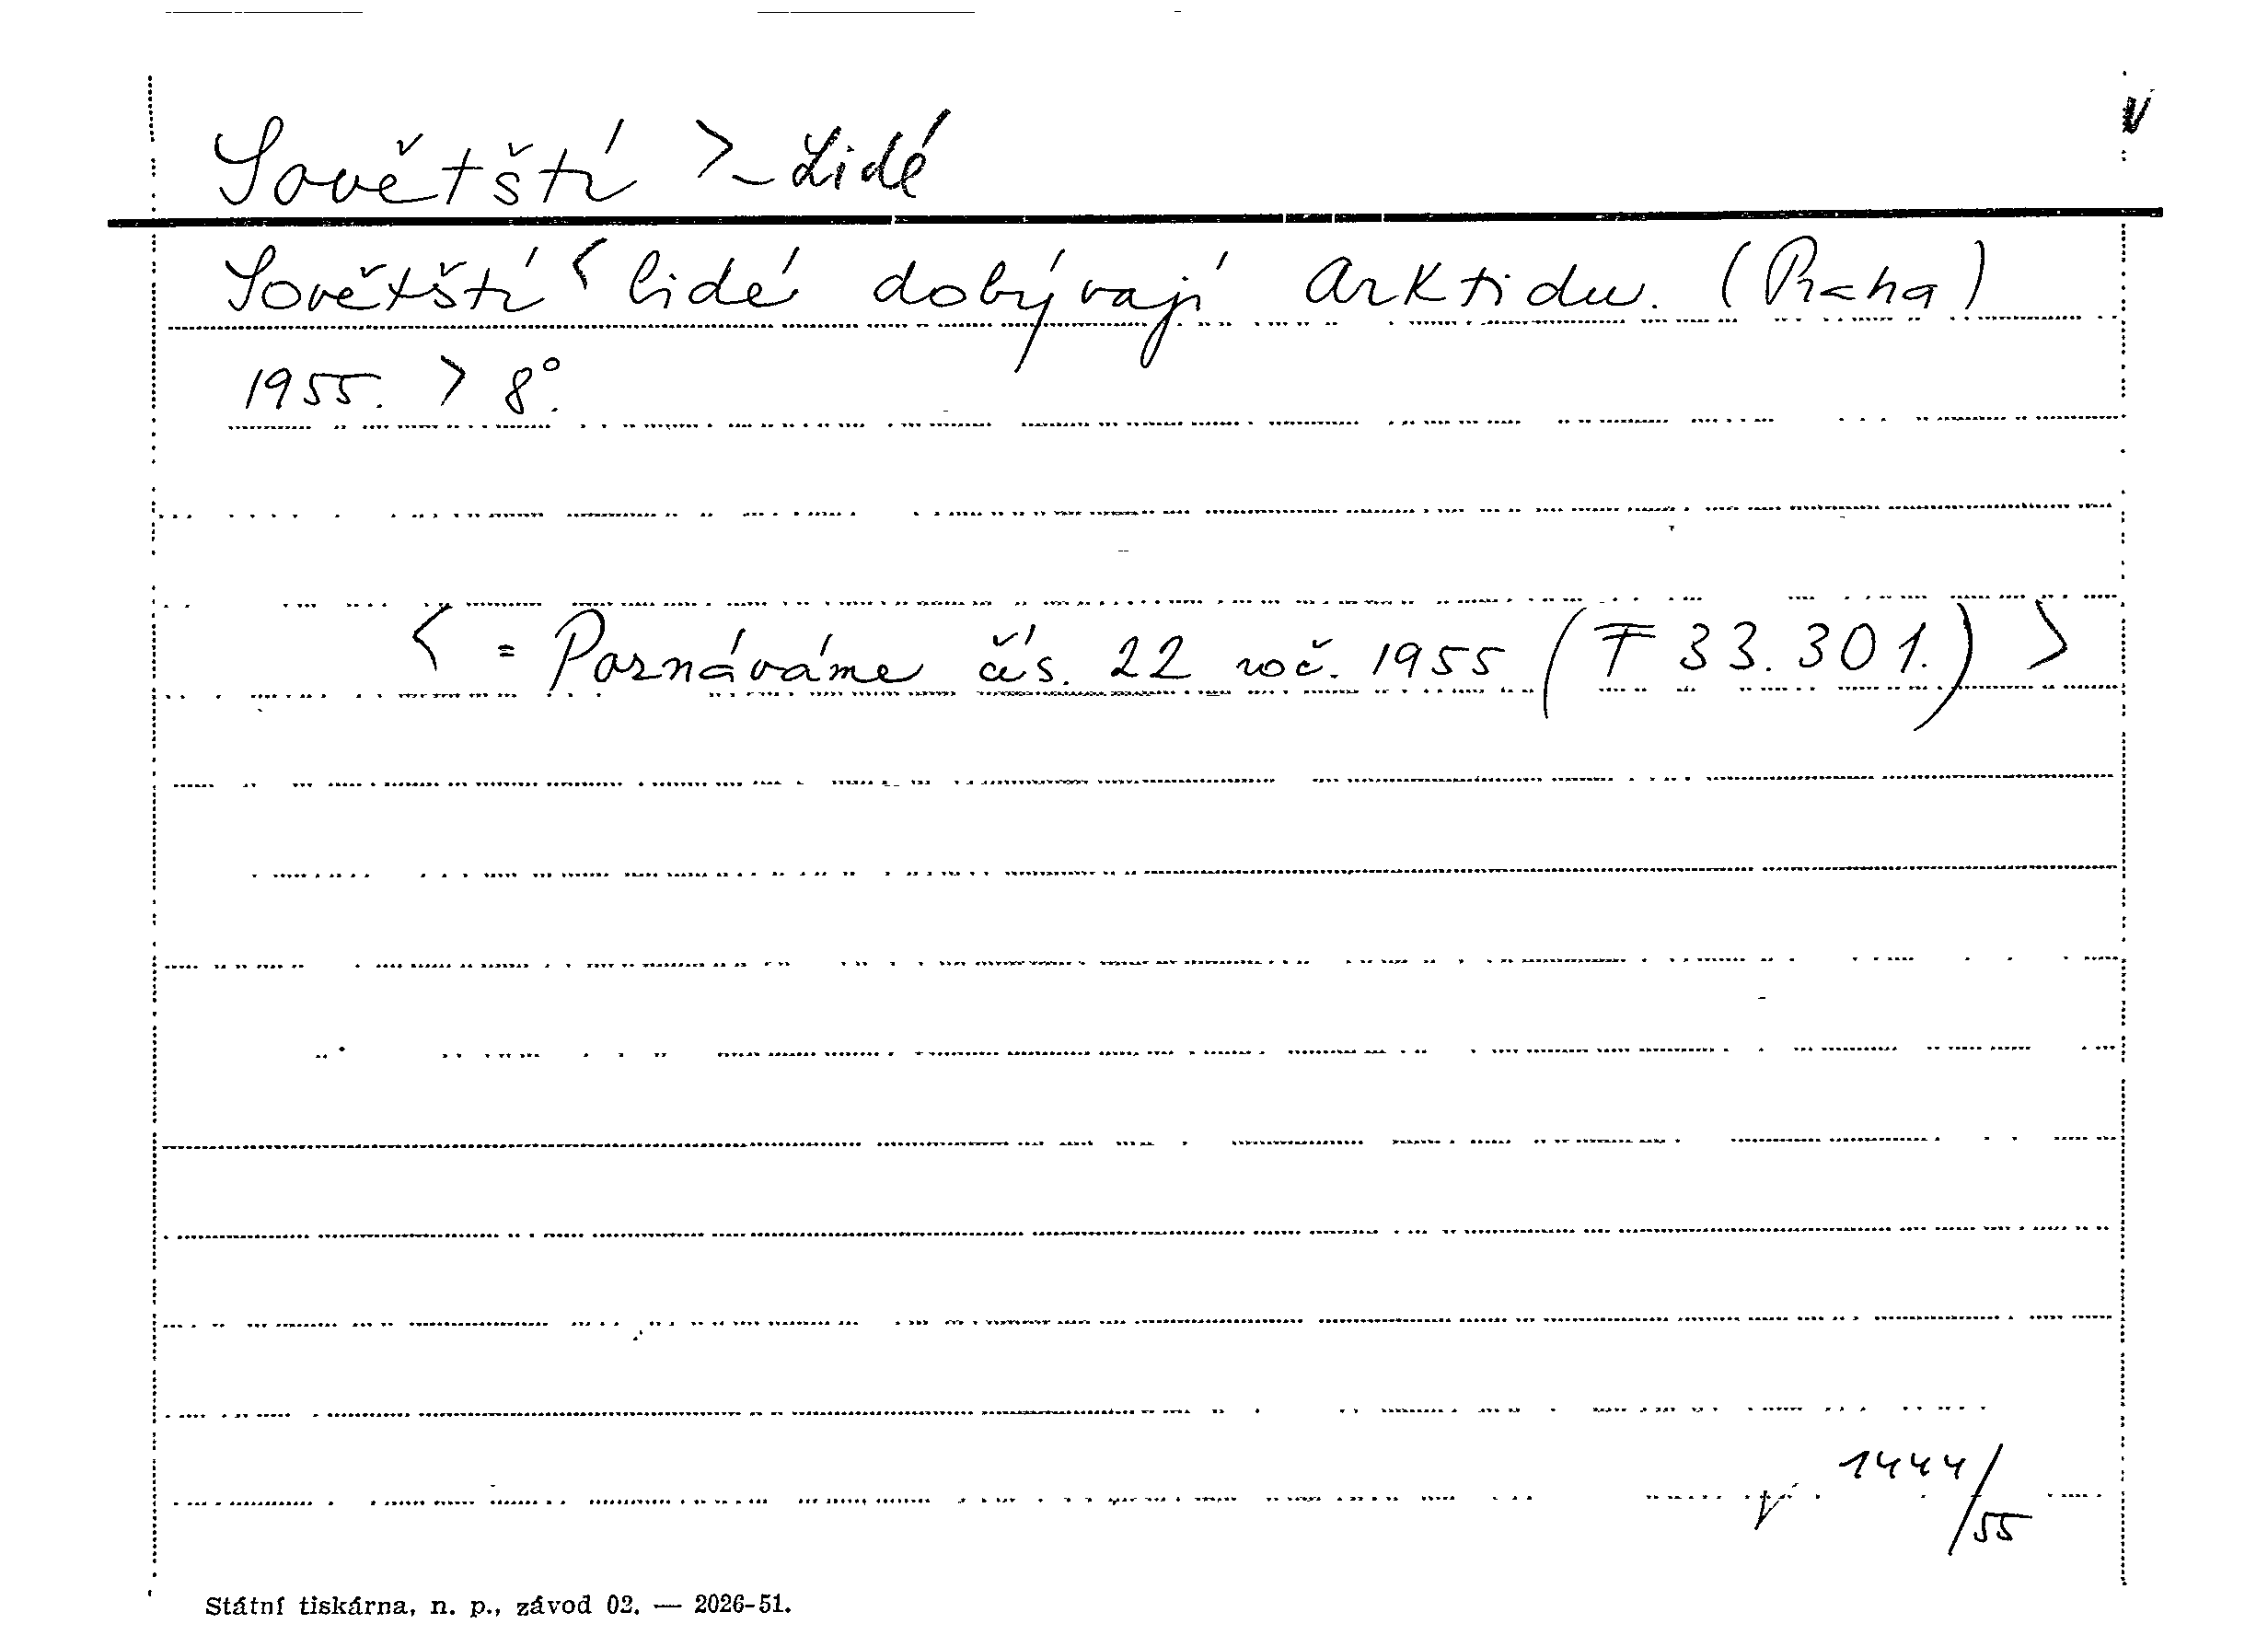 v
Sovětští >– Lidé
Sovětští < lidé dobývají Arktidu. (Praha)
1955. > 8°.
< = Poznáváme čís. 22 roč. 1955 (T 33.301.) >
v 1444/55
Státní tiskárna, n. p., závod 02. — 2026-51.